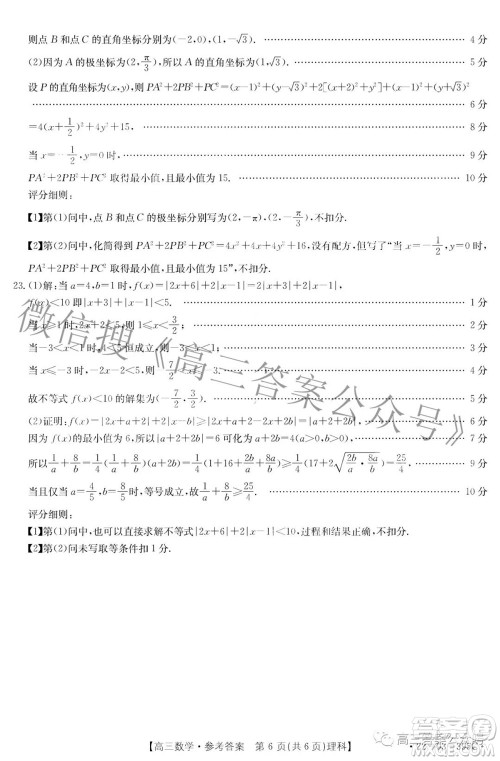 则点 B 和点 C 的直角坐标分别为(-2,0),(1,-√3). 4 分
(2)因为 A 的极坐标为(2,π/3),所以 A 的直角坐标为(1,√3). 5 分
设 P 的直角坐标为(x,y),则 PA²+2PB²+PC²=(x-1)²+(y-√3)²+2[(x+2)²+y²]+(x-1)²+(y+√3)²
6 分
=4(x+1/2)²+4y²+15, 8 分
当 x=-1/2,y=0时, 9 分
PA²+2PB²+PC²取得最小值,且最小值为 15. 10 分
评分细则:
【1】第(1)问中,点 B 和点 C 的极坐标分别写为(2,-π),(2,-π/3),不扣分.
【2】第(2)问中,化简得到 PA²+2PB²+PC²=4x²+4x+4y²+16,没有配方,但是写了“当 x=-1/2,y=0时,
PA²+2PB²+PC²取得最小值,且最小值为 15”,不扣分.
23.(1)解:当 a=4,b=1时,f(x)=|2x+6|+|2x-2|, 1 分
f(x)<10 即|x+3|+|x-1|<5. 2 分
当 x≥1时,2x+2<5,则 1≤x<3/2; 3 分
当-3<x<1时,4<5,则-3<x<1;
当 x≤-3时,-2x-2<5,则-7/2<x≤-3. 4 分
故不等式 f(x)<10 的解集为(-7/2,3/2). 5 分
(2)证明:f(x)=|2x+a+2|+|2x-2b|≥|2x+a+2-2x+2b|=|a+2+2b|. 6 分
因为 f(x)的最小值为 6,所以|a+2+2b|=6 可化为 a+2b=4(a>0,b>0). 7 分
所以1/a+8/b=1/4(1/a+8/b)(a+2b)=1/4(1+16+2b/a+8a/b)≥1/4(17+2√(2b/a·8a/b))=25/4, 9 分
当且仅当 a=4/5,b=8/5时,等号成立,故1/a+8/b≥25/4. 10 分
评分细则:
【1】第(1)问中,也可以直接求解不等式|2x+6|+2|x-1|<10,不扣分.
【2】第(2)问未写取等条件扣 1 分.
微信搜《高三答案公众号》
【高三数学·参考答案 第 6 页(共 6 页)理科】